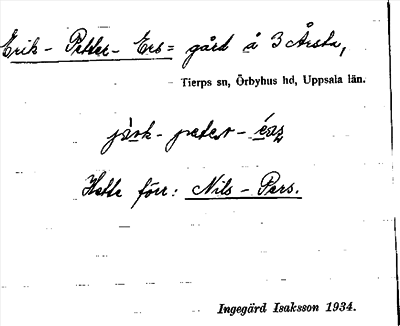 Erik-Petter-Ers= gård å 3 Årsta,
Tierps sn, Örbyhus hd, Uppsala län.
Hette förr: Nils-Pers.
Ingegärd Isaksson 1934.